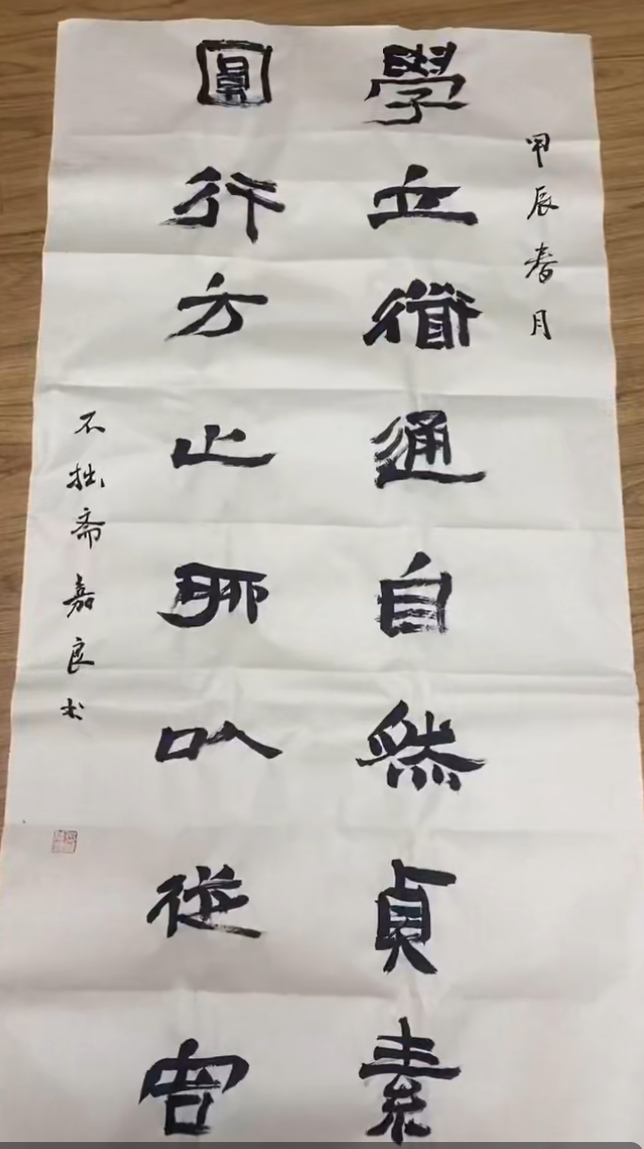 甲辰春月
學立衜通自然貞素
圓行方止聊以從容
不拙斋嘉良书